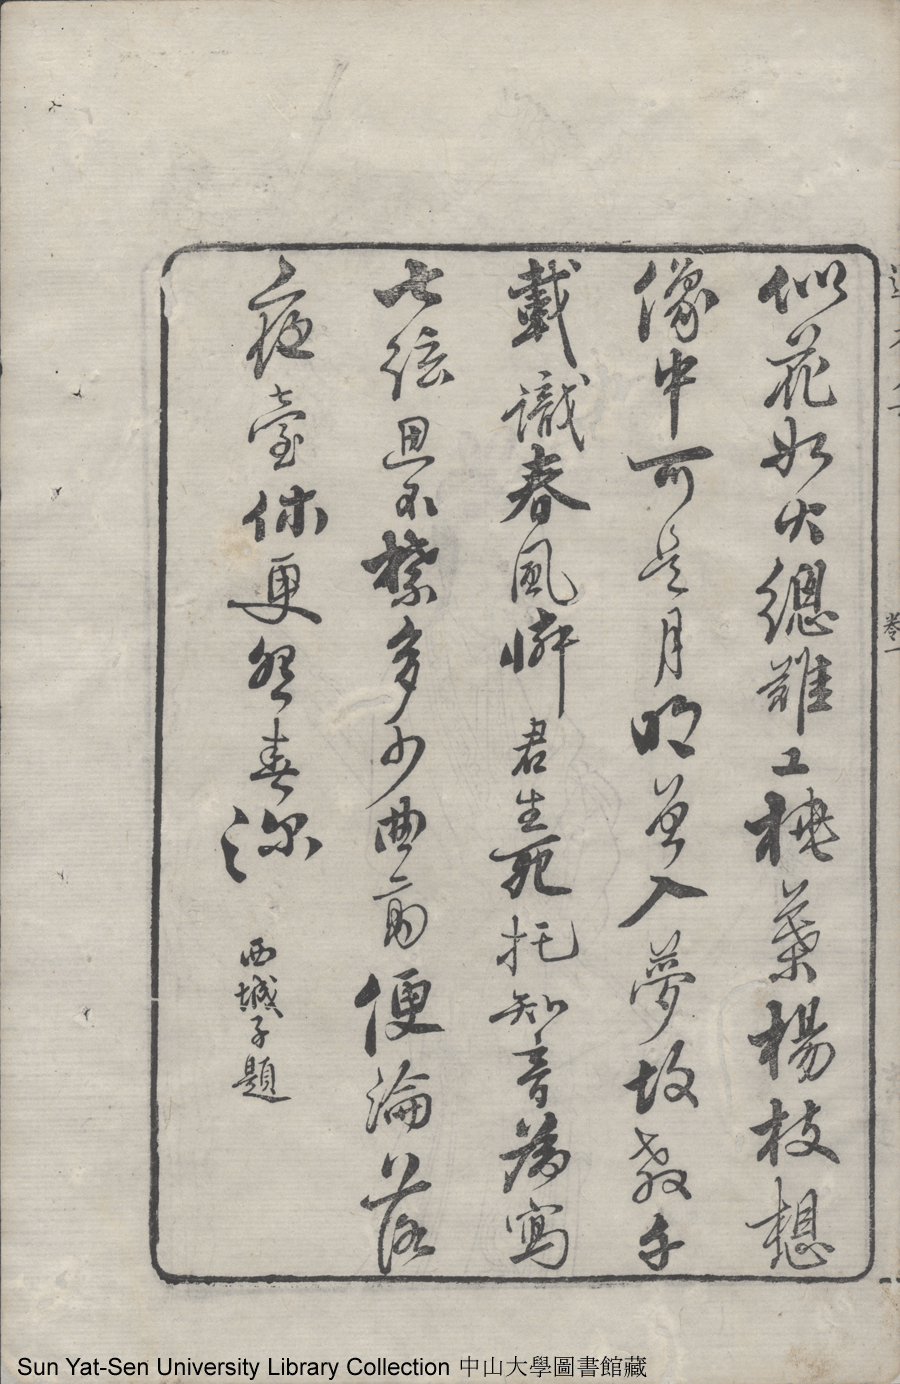 似花如火總難工桃葉楊枝想
像中可是月明曾入夢故教千
載識春風憐君生死托知音爲寫
七弦思不禁多少曲高便淪落
夜臺休更怨春深
西城子題
卷一
Sun Yat-Sen University Library Collection 中山大學圖書館藏